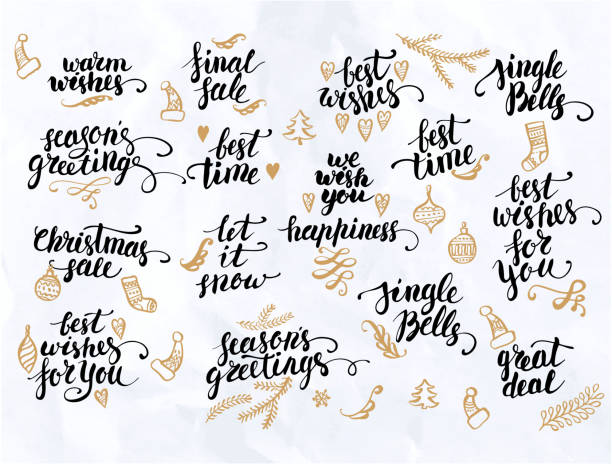 warm
wishes
final
sale
best
wishes
jingle
Bells
season's
greetings
best
time
we
wish
you
happiness
best
time
best
wishes
for
you
Christmas
sale
let
it
snow
jingle
Bells
best
wishes
for you
season's
greetings
great
deal